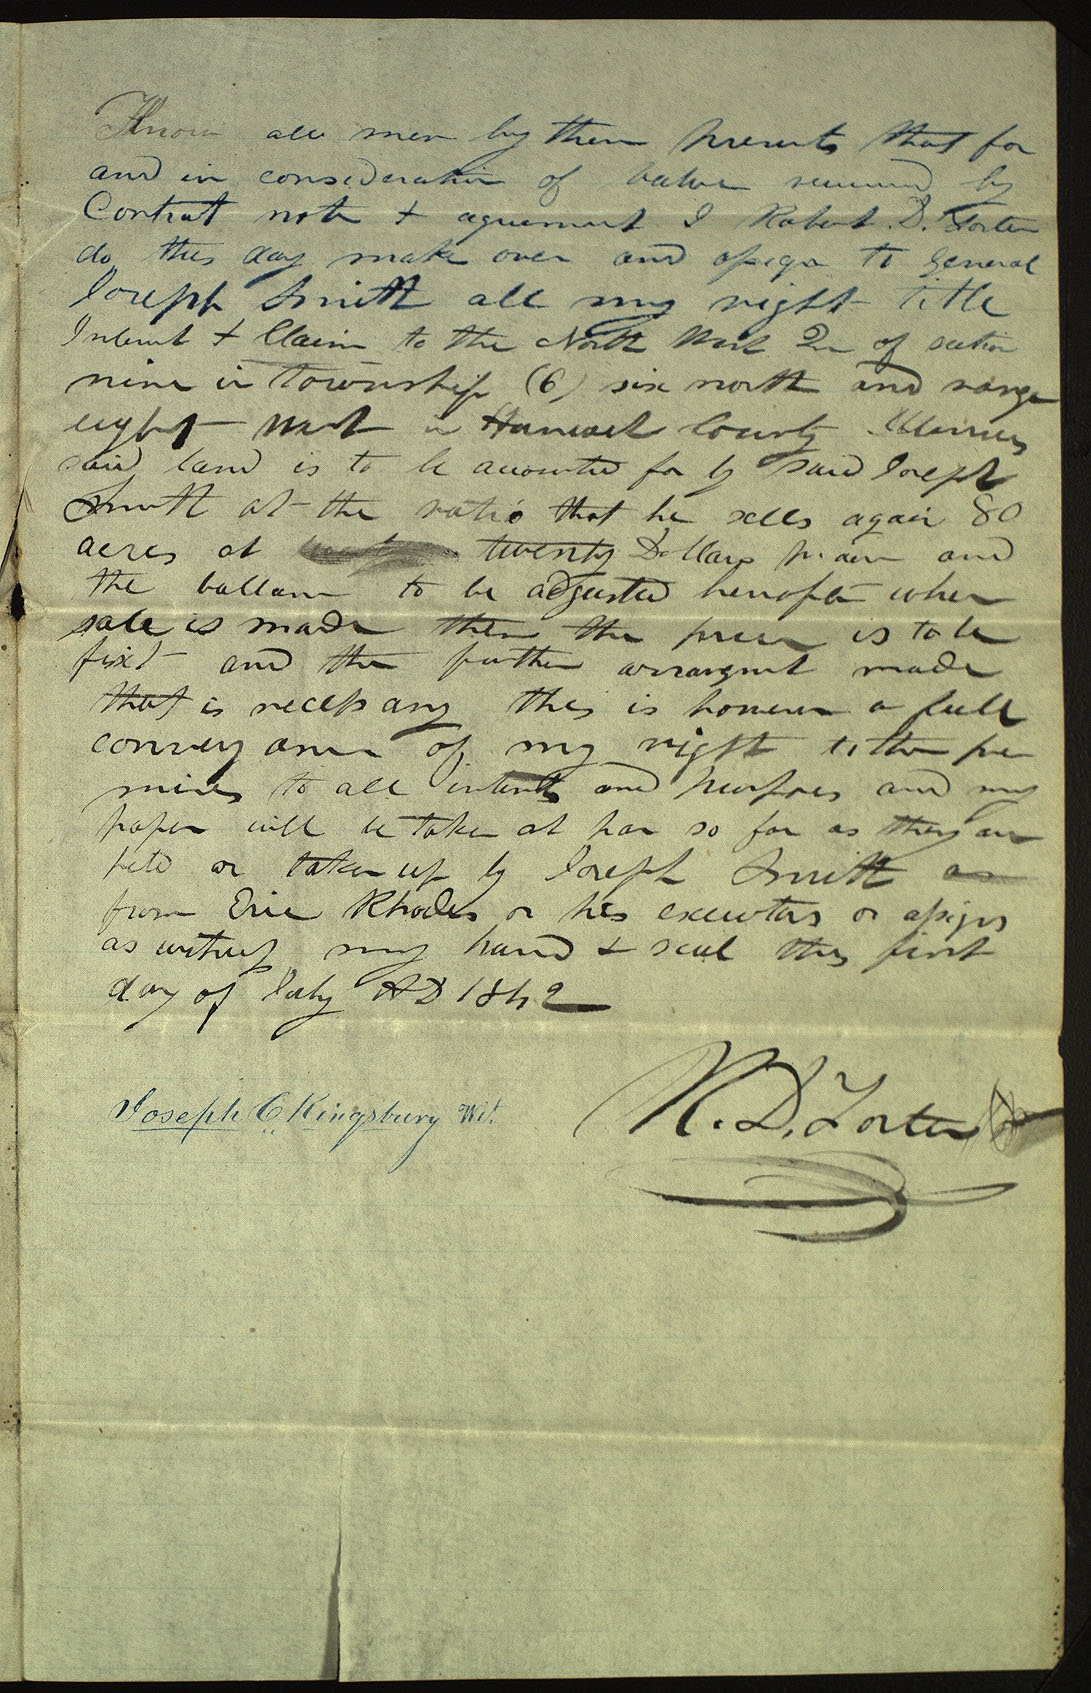 Know all men by these presents that for
and in consideration of value received by
Contrat note & agreement I Robert. D. Foster
do this day make over and assign to General
Joseph Smith all my right title
Interest & Claim to the North West Qr of section
nine in township (6) six north and range
eight west in Hancock County Illinois
said land is to be accounted for by said Joseph
Smith at the ratio that he sells again 80
acres at twenty Dollars pr. acre and
the ballance to be adjusted hereafter when
sale is made then the price is to be
fixt and the further arrangmt made
that is necessary this is however a full
conveyance of my right to the pre
mises to all intents and purposes and my
paper will be taken at par so far as they are
held or taken up by Joseph Smith as
from Eric Rhodes or his executors or assigns
as witness my hand & seal this first
day of July AD 1842
R. D. Foster
Joseph C. Kingsbury Wit.